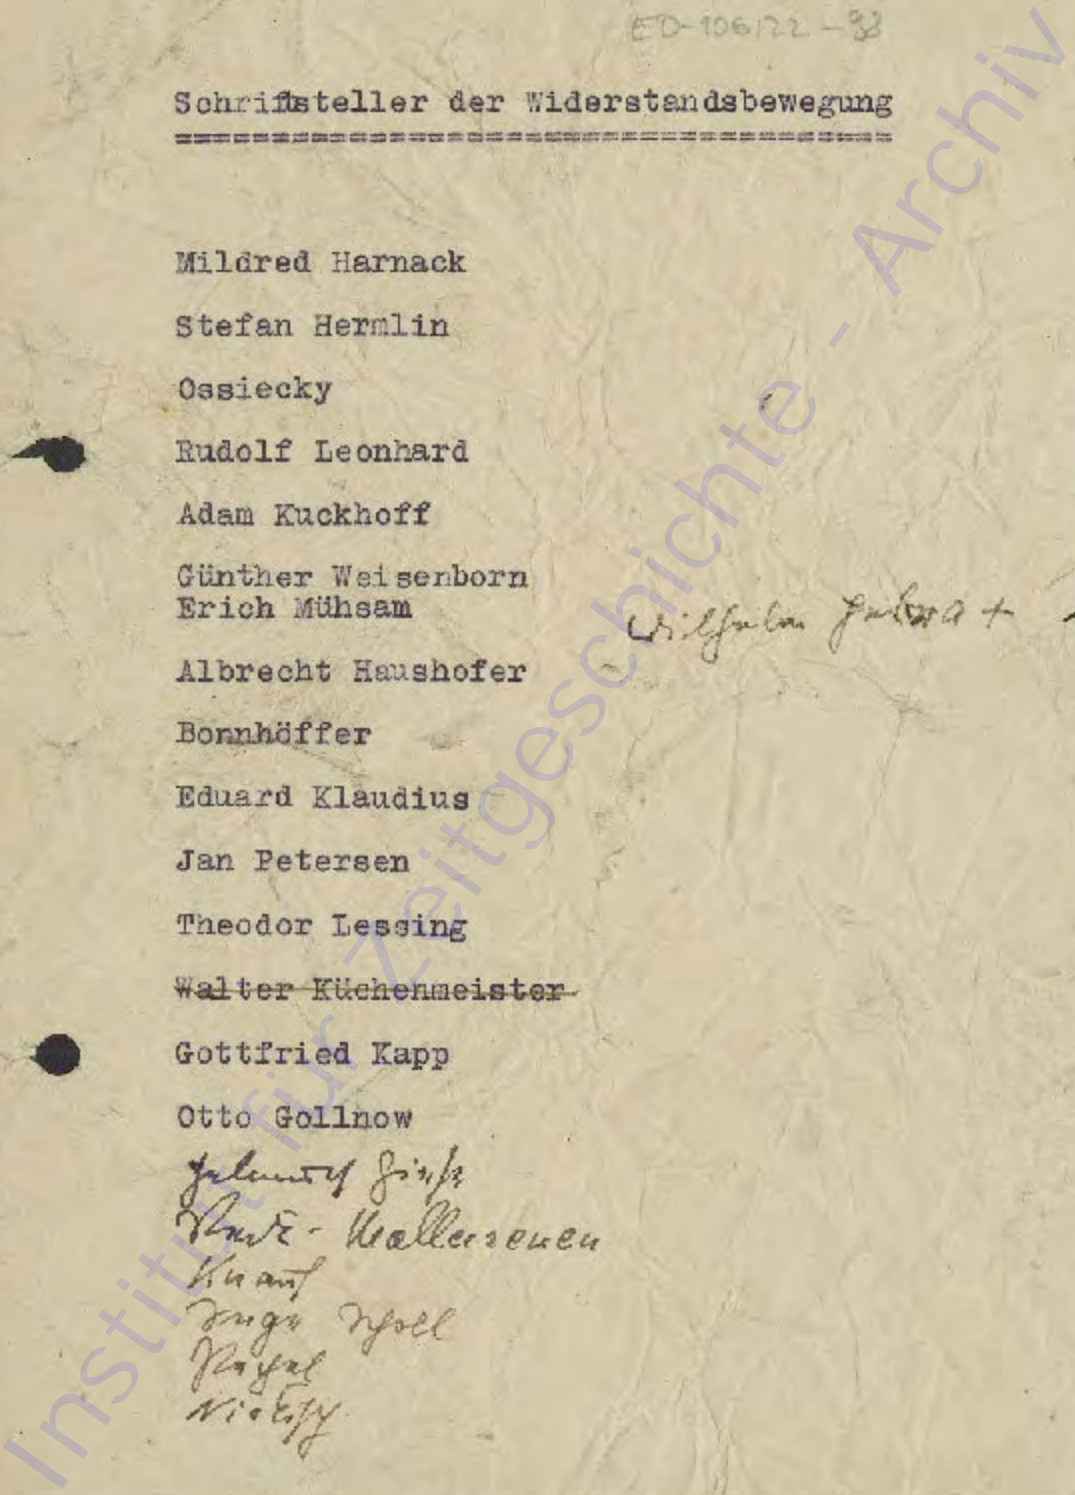 ED-106/22-98
Schriftsteller der Widerstandsbewegung
=====================================
Mildred Harnack
Stefan Hermlin
Ossiecky
Rudolf Leonhard
Adam Kuckhoff
Günther Weisenborn
Erich Mühsam
Wilhelm +
Albrecht Haushofer
Bonnhöffer
Eduard Klaudius
Jan Petersen
Theodor Lessing
Walter Küchenmeister
Gottfried Kapp
Otto Gollnow
Reck-Malleczewen
Knauf
Inge Scholl
Pechel
Niekisch
Institut für Zeitgeschichte - Archiv